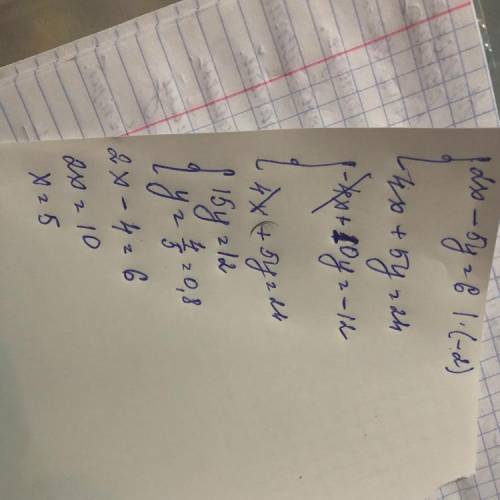 { 2x - 5y = 6 | · (-2)
4x + 5y = 24
{ -4x + 10y = -12
4x + 5y = 24
{ 15y = 12
y = 4/5 = 0,8
2x - 4 = 6
2x = 10
x = 5